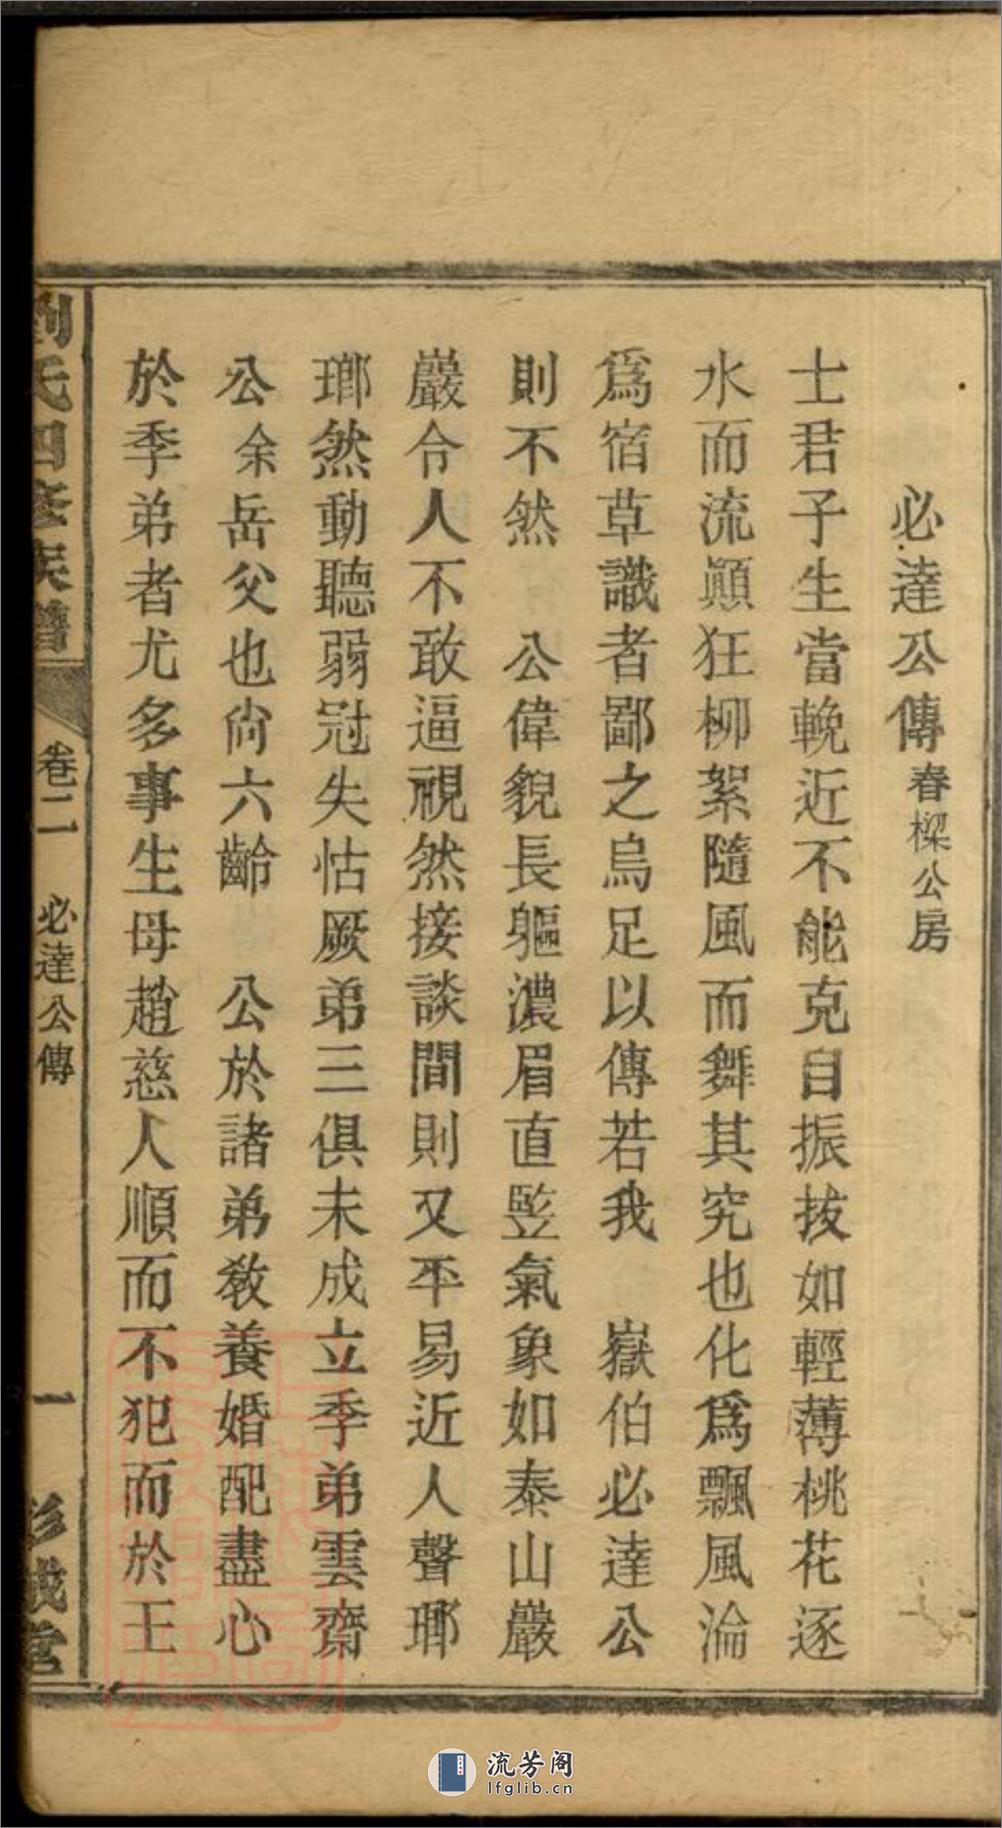 必達公傳 春樑公房
士君子生當輓近不能克自振拔如輕薄桃花逐
水而流顚狂柳絮隨風而舞其究也化爲飄風淪
爲宿草識者鄙之烏足以傳若我 嶽伯必達公
則不然 公偉貌長軀濃眉直竪氣象如泰山巖
巖令人不敢逼視然接談間則又平易近人聲瑯
瑯然動聽弱冠失怙厥弟三俱未成立季弟雲齋
公余岳父也尙六齡 公於諸弟敎養婚配盡心
於季弟者尤多事生母趙慈人順而不犯而於王
劉氏四修族譜 卷二 必達公傳 一 彭城堂
流芳阁
lfglib.cn